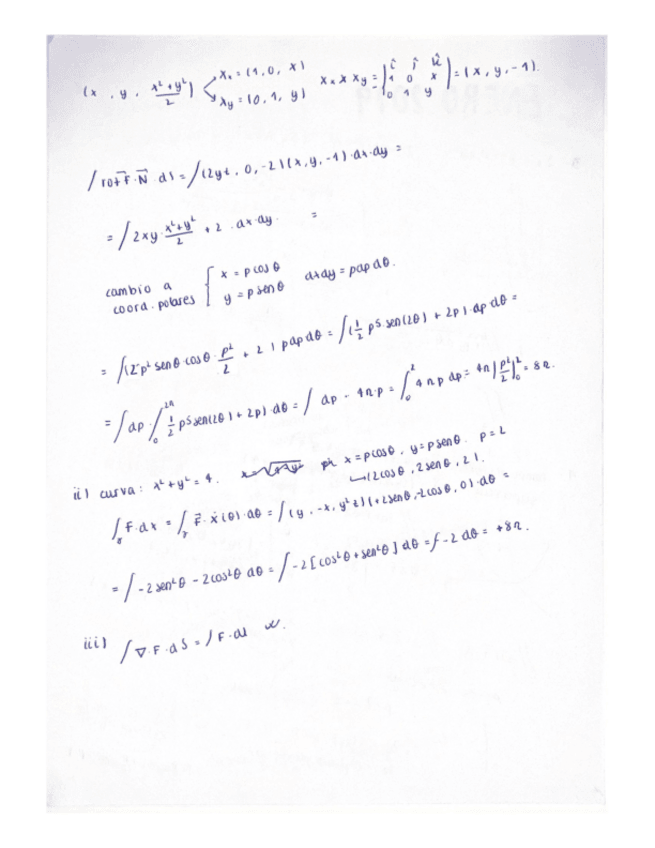 (x, y, x²+y²/2) Xx = (1, 0, x) Xy = (0, 1, y) Xx x Xy = |î ĵ k̂ 1 0 x 0 1 y| = (x, y, -1).
∫ rot F⃗ · N⃗ dS = ∫ (2yz, 0, -2)(x, y, -1) · dx · dy =
= ∫ 2xy · x²+y²/2 + 2 · dx · dy. =
cambio a coord. polares { x = ρ cos θ y = ρ sen θ dxdy = ρdρdθ.
= ∫ (2 ρ² sen θ cos θ · ρ²/2 + 2) ρdρdθ = ∫ (1/2 ρ⁵ sen(2θ) + 2ρ) · dρ dθ =
= ∫ dρ · ∫₀^2π (1/2 ρ⁵ sen(2θ) + 2ρ) · dθ = ∫ dρ · 4π·ρ = ∫₀² 4πρ dρ = 4π |ρ²/2|₀² = 8π.
ii) curva: x² + y² = 4. x = ρ cos θ, y = ρ sen θ. ρ = 2
(2 cos θ, 2 sen θ, 2).
∫γ F · dx = ∫γ F⃗ · ẋ(θ) · dθ = ∫ (y, -x, y²z)(+2 sen θ, -2 cos θ, 0) · dθ =
= ∫ -2 sen²θ - 2 cos²θ dθ = ∫ -2 [cos²θ + sen²θ] dθ = ∫ -2 dθ = +8π.
iii) ∫ ∇ · F · dS = ∫ F · dl